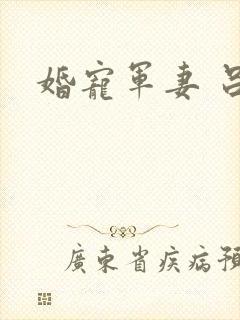 婚寵軍妻 呂
廣東省疾病預